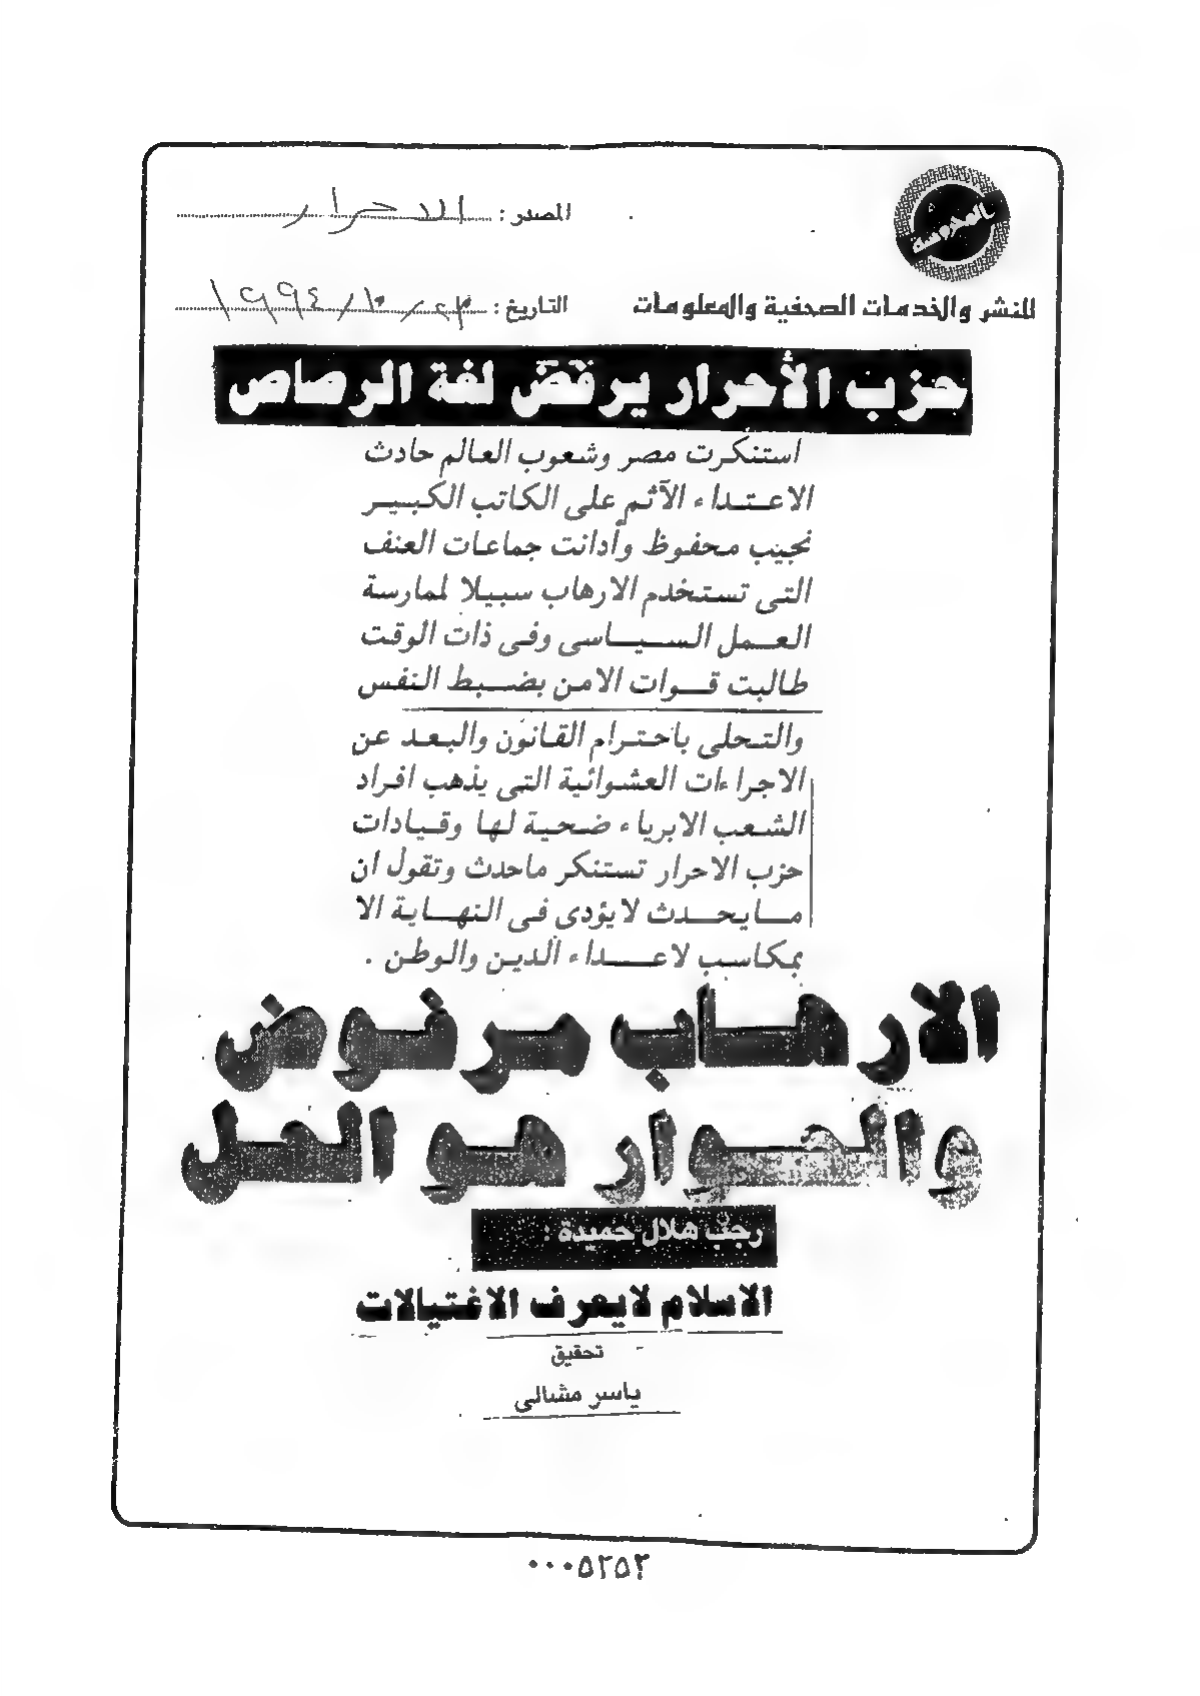 المحروسة
المصدر : الاحرار
للنشر والخدمات الصحفية والمعلومات
التاريخ : ٢٣ / ١٠ / ١٩٩٤
حزب الأحرار يرفض لغة الرصاص
استنكرت مصر وشعوب العالم حادث
الاعتداء الآثم على الكاتب الكبير
نجيب محفوظ وأدانت جماعات العنف
التى تستخدم الارهاب سبيلا لممارسة
العمل السياسى وفى ذات الوقت
طالبت قوات الامن بضبط النفس
والتحلى باحترام القانون والبعد عن
الاجراءات العشوائية التى يذهب افراد
الشعب الابرياء ضحية لها وقيادات
حزب الاحرار تستنكر ماحدث وتقول ان
مايحدث لا يؤدى فى النهاية الا
بمكاسب لاعداء الدين والوطن .
الارهاب مرفوض
والحوار هو الحل
رجب هلال حميدة :
الاسلام لايعرف الاغتيالات
تحقيق
ياسر مشالى
٠٠٠٥٢٥٢